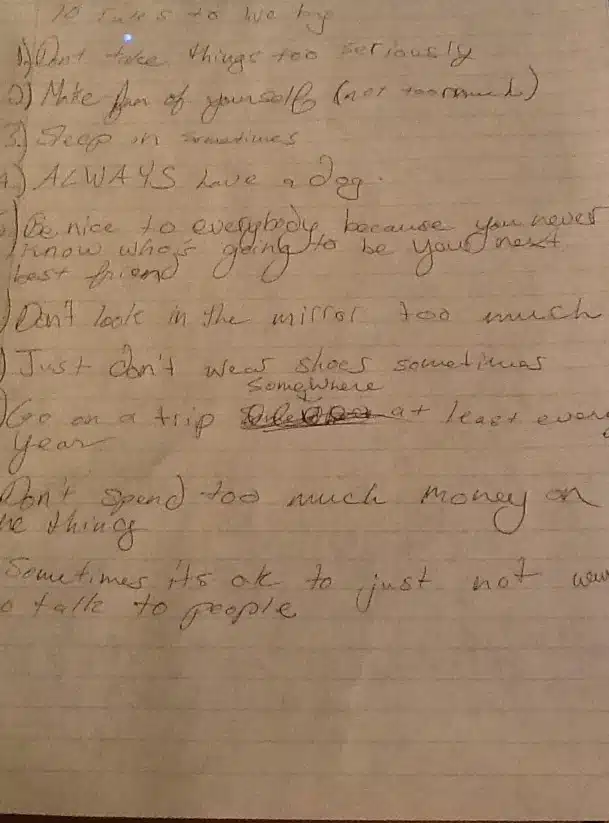 10 rules to live by
1.) Don't take things too seriously
2) Make fun of yourself (not too much)
3.) Sleep in sometimes
4.) ALWAYS have a dog.
5.) Be nice to everybody because you never
know who's going to be your next
best friend
) Don't look in the mirror too much
) Just don't wear shoes sometimes
somewhere
) Go on a trip at least every
year
Don't spend too much money on
ne thing
Sometimes it's ok to just not wan
o talk to people